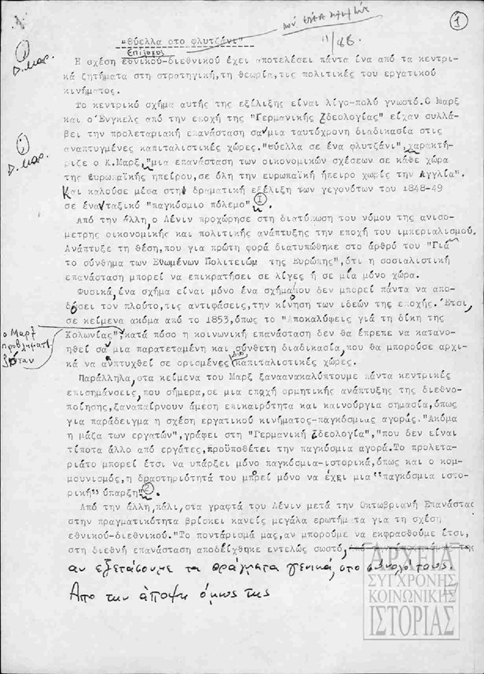 1
11/86.
"Θύελλα στο φλυτζάνι"
Επίλογος
Η σχέση εθνικού-διεθνικού έχει αποτελέσει πάντα ένα από τα κεντρι-
κά ζητήματα στη στρατηγική, τη θεωρία, τις πολιτικές του εργατικού
κινήματος.
Το κεντρικό σχήμα αυτής της εξέλιξης είναι λίγο-πολύ γνωστό. Ο Μαρξ
και ο Ένγκελς από την εποχή της "Γερμανικής Ιδεολογίας" είχαν συλλά-
βει την προλεταριακή επανάσταση σα μια ταυτόχρονη διαδικασία στις
αναπτυγμένες καπιταλιστικές χώρες. "Θύελλα σε ένα φλυτζάνι", χαρακτή-
ριζε ο Κ. Μαρξ, "μια επανάσταση των οικονομικών σχέσεων σε κάθε χώρα
της Ευρωπαϊκής ηπείρου, σε όλη την ευρωπαϊκή ήπειρο χωρίς την Αγγλία".
Και καλούσε μέσα στη δραματική εξέλιξη των γεγονότων του 1848-49
σε ένα ταξικό "παγκόσμιο πόλεμο" 1
Από την άλλη, ο Λένιν προχώρησε στη διατύπωση του νόμου της ανισο-
μετρης οικονομικής και πολιτικής ανάπτυξης την εποχή του ιμπεριαλισμού.
Ανάπτυξε τη θέση, που για πρώτη φορά διατυπώθηκε στο άρθρο του "Για
το σύνθημα των Ενωμένων Πολιτειών της Ευρώπης", ότι η σοσιαλιστική
επανάσταση μπορεί να επικρατήσει σε λίγες ή σε μία μόνο χώρα.
Φυσικά, ένα σχήμα είναι μόνο ένα σχήμα που δεν μπορεί πάντα να απο-
δόσει τον πλούτο, τις αντιφάσεις, την κίνηση των ιδεών της εποχής. Έτσι,
σε κείμενα ακόμα από το 1853, όπως το "Αποκαλύψεις για τη δίκη της
Κολωνίας", κατά πόσο η κοινωνική επανάσταση δεν θα έπρεπε να κατανο-
ο Μαρξ
ηθεί σα μια παρατεταμένη και σύνθετη διαδικασία, που θα μπορούσε αρχι-
κά να αναπτυχθεί σε ορισμένες καπιταλιστικές χώρες.
Παράλληλα, στα κείμενα του Μαρξ ξαναανακαλύπτουμε πάντα κεντρικές
επισημάνσεις, που σήμερα, σε μια εποχή ορμητικής ανάπτυξης της διεθνο-
ποίησης, ξαναπαίρνουν άμεση επικαιρότητα και καινούργια σημασία, όπως
για παράδειγμα η σχέση εργατικού κινήματος-παγκόσμιας αγοράς. "Ακόμα
η μάζα των εργατών", γράφει στη "Γερμανική Ιδεολογία", "που δεν είναι
τίποτα άλλο από εργάτες, προϋποθέτει την παγκόσμια αγορά. Το προλετα-
ριάτο μπορεί έτσι να υπάρξει μόνο παγκόσμια-ιστορικά, όπως και ο κομ-
μουνισμός, η δραστηριότητά του μπορεί μόνο να έχει μια "παγκόσμια ιστο-
ρική" ύπαρξη" 2
Από την άλλη, πάλι, στα γραφτά του Λένιν μετά την Οκτωβριανή Επανάσταση
στην πραγματικότητα βρίσκει κανείς μεγάλα ερωτήματα για τη σχέση
εθνικού-διεθνικού. "Το ποντάρισμά μας, αν μπορούμε να εκφρασθούμε έτσι,
στη διεθνή επανάσταση αποδείχθηκε εντελώς σωστό,
αν εξετάσουμε τα πράγματα γενικά, στο σύνολό τους.
Απο την άποψη όμως της
ΑΡΧΕΙΑ
ΣΥΓΧΡΟΝΗΣ
ΚΟΙΝΩΝΙΚΗΣ
ΙΣΤΟΡΙΑΣ